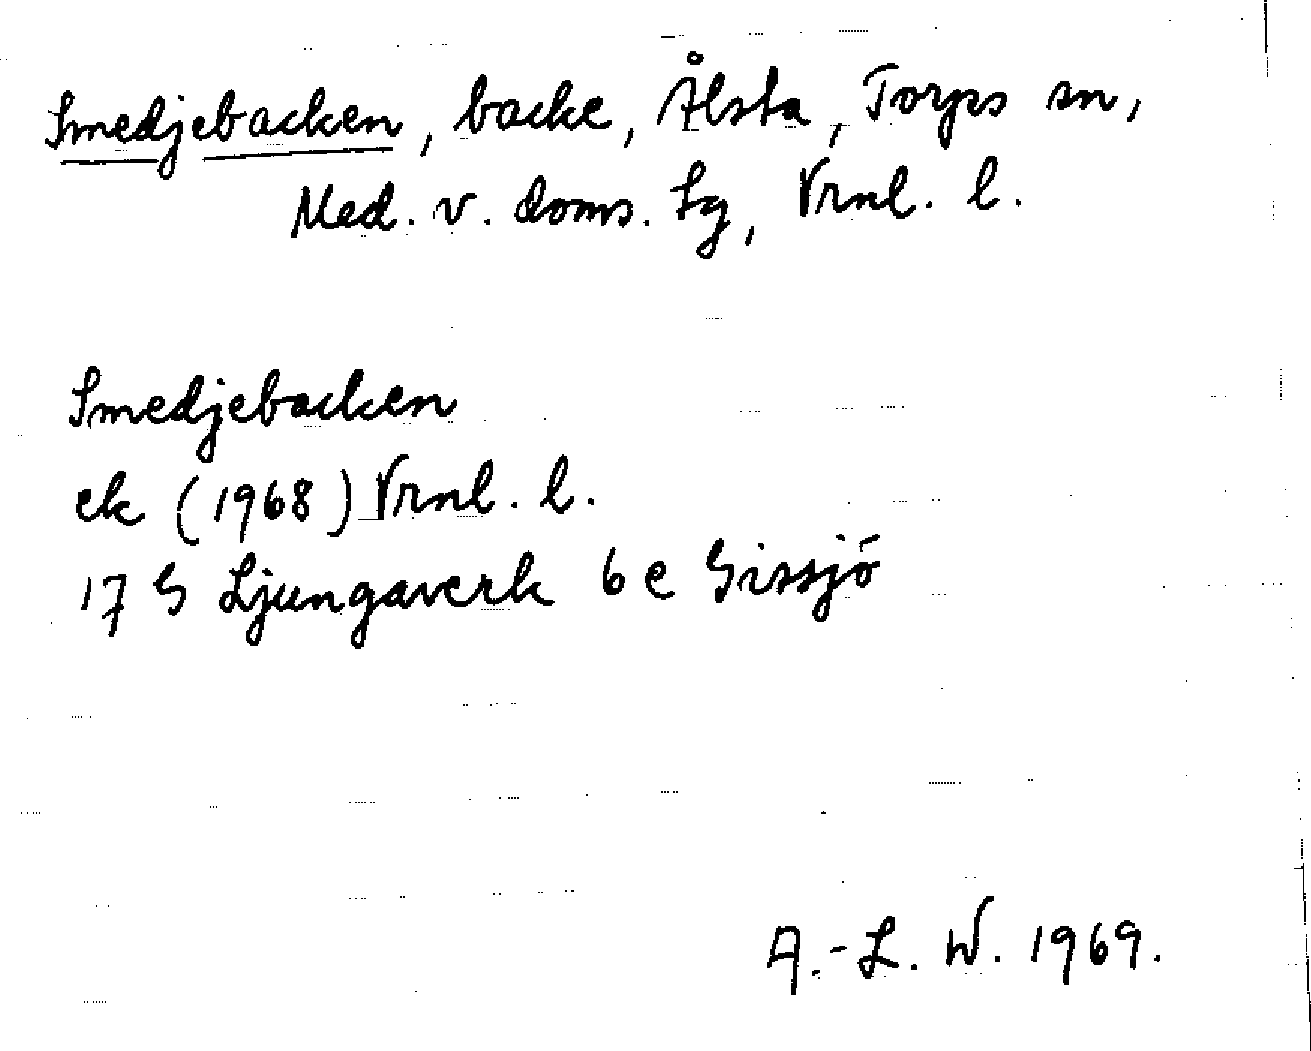 Smedjebacken, backe, Ålsta, Torps sn,
Med. v. doms. tg, Vrnl. l.
Smedjebacken
ek (1968) Vrnl. l.
17 G Ljungaverk 6 e Gissjö
A.-L. W. 1969.